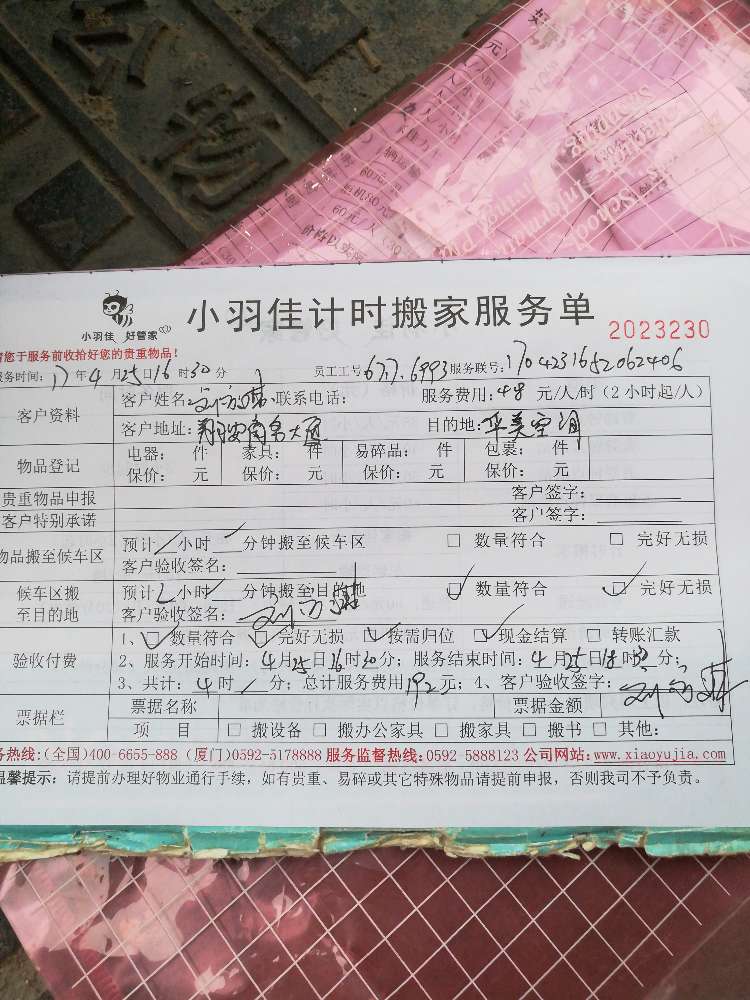 公物
元）
人/小时
60元/人（30
价格以实际
小羽佳 好管家
小羽佳计时搬家服务单
2023230
请您于服务前收拾好您的贵重物品！
服务时间：17年4月25日16时30分 员工工号 677.6993 服务联号：1704231652062406
客户资料
客户姓名： 联系电话： 服务费用：48 元/人/时（2小时起/人）
客户地址：翔安商务大厦 目的地：华美空调
物品登记
电器： 件 家具： 件 易碎品： 件 包裹： 件
保价： 元 保价： 元 保价： 元 保价： 元
贵重物品申报 客户签字：
客户特别承诺 客户签字：
物品搬至候车区
预计 小时 分钟搬至候车区 □ 数量符合 □ 完好无损
客户验收签名：
候车区搬至目的地
预计2小时 分钟搬至目的地 ☑ 数量符合 ☑ 完好无损
客户验收签名：
验收付费
1、☑ 数量符合 ☑ 完好无损 ☑ 按需归位 ☑ 现金结算 □ 转账汇款
2、服务开始时间：4月25日16时30分；服务结束时间：4月25日18时30分；
3、共计：4时 分；总计服务费用192元；4、客户验收签字：
票据栏
票据名称 票据金额
项 目 □ 搬设备 □ 搬办公家具 □ 搬家具 □ 搬书 □ 其他：
务热线:(全国)400-6655-888 (厦门)0592-5178888 服务监督热线:0592 5888123 公司网站:www.xiaoyujia.com
温馨提示：请提前办理好物业通行手续，如有贵重、易碎或其它特殊物品请提前申报，否则我司不予负责。